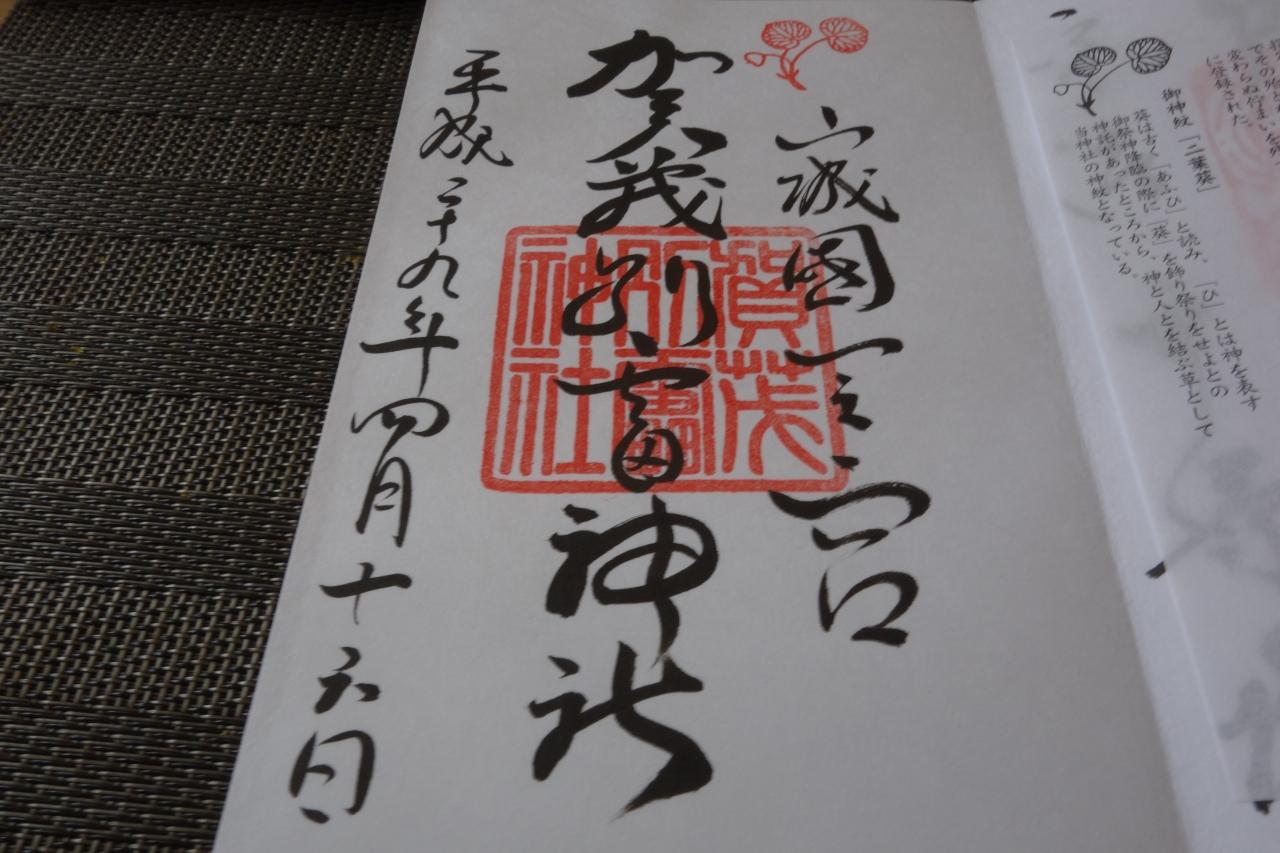 変わらぬ佇まい
に登録された。
御神紋「二葉葵」
葵は古く「あふひ」と読み、「ひ」とは神を表す
御祭神降臨の際に「葵」を飾り祭りをせよとの
神託があったところから、神と人とを結ぶ草として
当神社の神紋となっている。
山城國一之宮
賀茂別雷神社
平成二十九年四月十六日
賀茂
別雷
神社